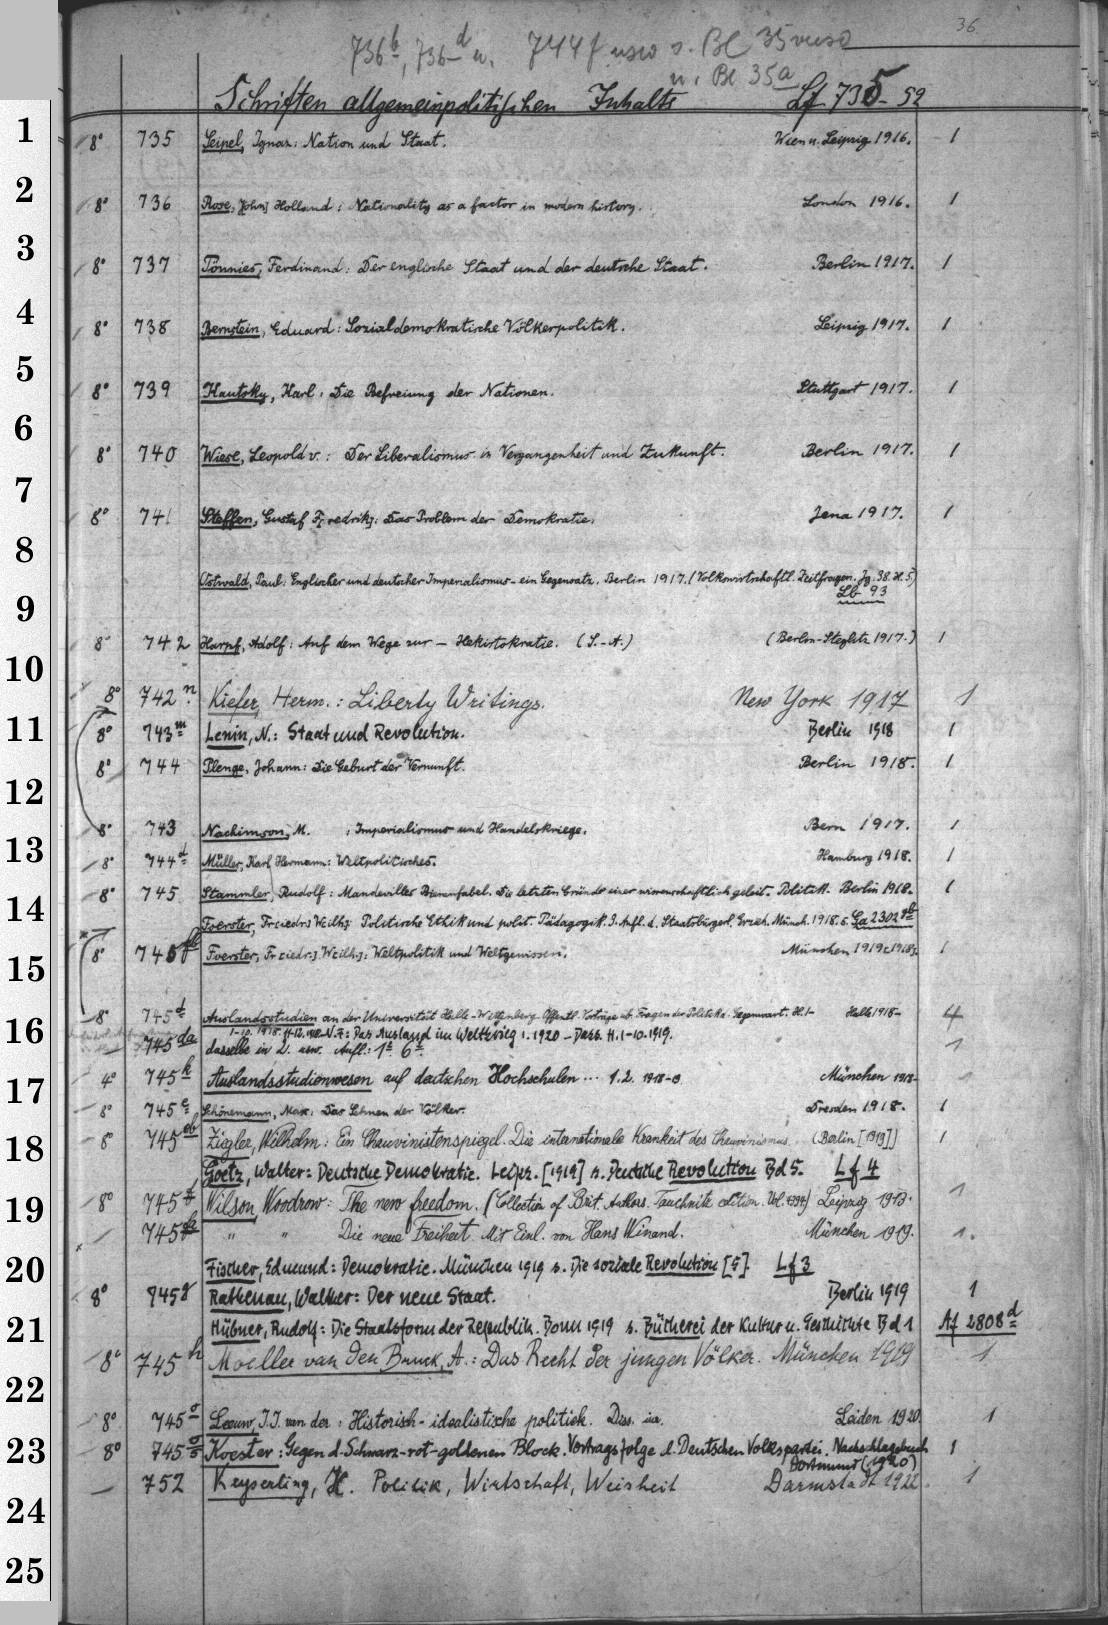 36
736b, 736d u. 744f usw s. Bl 35 verso
u. Bl 35a
Schriften allgemeinpolitischen Inhalts Lf 735-52
1
8° 735 Seipel, Ignaz: Nation und Staat. Wien u. Leipzig 1916. 1
2
8° 736 Rose, John Holland: Nationality as a factor in modern history. London 1916. 1
3
8° 737 Tönnies, Ferdinand: Der englische Staat und der deutsche Staat. Berlin 1917. 1
4
8° 738 Bernstein, Eduard: Sozialdemokratische Völkerpolitik. Leipzig 1917. 1
5
8° 739 Kautsky, Karl: Die Befreiung der Nationen. Stuttgart 1917. 1
6
8° 740 Wiese, Leopold v.: Der Liberalismus in Vergangenheit und Zukunft. Berlin 1917. 1
7
8° 741 Steffen, Gustaf F[redrik]: Das Problem der Demokratie. Jena 1917. 1
8
Ostwald, Paul: Englischer und deutscher Imperialismus - ein Gegensatz. Berlin 1917. (Volkswirtschaftl. Zeitfragen. Jg. 38. H. 5)
Lb 93
9
8° 742 Harpf, Adolf: Auf dem Wege zur - Hekistokratie. (S.-A.) (Berlin-Steglitz 1917.) 1
10
8° 742n Kiefer, Herm.: Liberty Writings. New York 1917 1
11
8° 743m Lenin, N.: Staat und Revolution. Berlin 1918 1
8° 744 Plenge, Johann: Die Geburt der Vernunft. Berlin 1918. 1
12
8° 743 Nachimson, M. : Imperialismus und Handelskriege. Bern 1917. 1
13
8° 744d Müller, Karl Hermann: Weltpolitisches. Hamburg 1918. 1
8° 745 Stammler, Rudolf: Mandevilles Bienenfabel. Die letzten Gründe einer wissenschaftlich geleit. Politik. Berlin 1918. 1
14
Foerster, Fr[iedr.] Wilh.: Politische Ethik und polit. Pädagogik. 3. Aufl. d. Staatsbürgerl. Erzieh. Münch. 1918. s. Ga 2302
8° 745 Foerster, Fr[iedr.] W[ilh.]: Weltpolitik und Weltgewissen. München 1919 1
15
8° 745d Auslandsstudien an der Universität Halle-Wittenberg. Öffentl. Vorträge üb. Fragen der Politik d. Gegenwart. H. 1- Halle 1918- 4
1-10. 1918. Das Ausland im Weltkrieg 1. 1920 - Dass. H. 1-10. 1919.
16
745da dasselbe in 2. usw. Aufl.: 1. 6. 1
4° 745k Auslandsstudienwesen auf deutschen Hochschulen ... 1.2. München 1918-
17
8° 745e Schönemann, Max: Das Sehnen der Völker. Dresden 1918. 1
8° 745eb Ziegler, Wilhelm: Ein Chauvinistenspiegel. Die internationale Krankheit des Chauvinismus. (Berlin [1919]) 1
18
Goetz, Walter: Deutsche Demokratie. Leipz. [1919] s. Deutsche Revolution Bd 5. Lf 4
8° 745f Wilson, Woodrow: The new freedom. (Collection of Brit. Authors. Tauchnitz edition. Vol. 4394) Leipzig 1913. 1
19
745 " " Die neue Freiheit. Mit Einl. von Hans Winand. München 1919. 1.
20
Fischer, Edmund: Demokratie. München 1919 s. Die soziale Revolution [5]. Lf 3
8° 745g Rathenau, Walther: Der neue Staat. Berlin 1919 1
21
Hübner, Rudolf: Die Staatsform der Republik. Bonn 1919 s. Bücherei der Kultur u. Geschichte Bd 1 Af 2808d
8° 745h Moeller van den Bruck, A.: Das Recht der jungen Völker. München 1919 1
22
8° 745o Leeuw, I. I. van der: Historisch-idealistische politiek. Diss. ia. Leiden 1920. 1
23
8° 745 Koester: Gegen d. Schwarz-rot-goldenen Block. Vortragsfolge d. Deutschen Volkspartei. Nachschlagebuch 1
Dortmund (1920)
752 Keyserling, H. Politik, Wirtschaft, Weisheit Darmstadt 1922 1
24
25